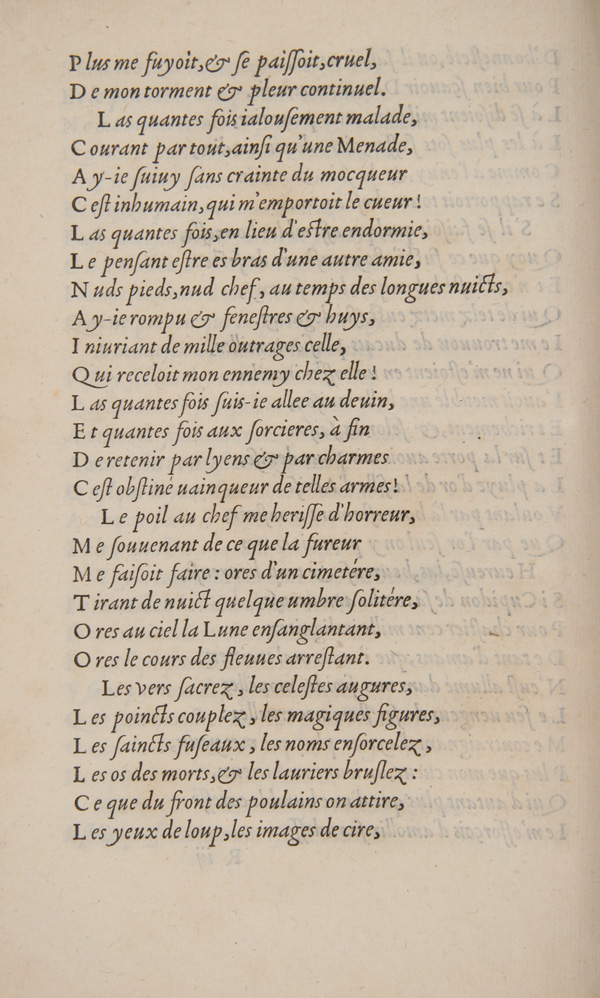 Plus me fuyoit, & ſe paiſſoit, cruel,
De mon torment & pleur continuel.
Las quantes fois ialouſement malade,
Courant par tout, ainſi qu'une Menade,
Ay-ie ſuiuy ſans crainte du mocqueur
Ceſt inhumain, qui m'emportoit le cueur!
Las quantes fois, en lieu d'eſtre endormie,
Le penſant eſtre es bras d'une autre amie,
Nuds pieds, nud chef, au temps des longues nuicts,
Ay-ie rompu & feneſtres & huys,
Iniuriant de mille outrages celle,
Qui receloit mon ennemy chez elle!
Las quantes fois ſuis-ie allee au deuin,
Et quantes fois aux ſorcieres, à fin
De retenir par lyens & par charmes
Ceſt obſtiné uainqueur de telles armes!
Le poil au chef me heriſſe d'horreur,
Me ſouuenant de ce que la fureur
Me faiſoit faire : ores d'un cimetére,
Tirant de nuict quelque umbre ſolitére,
Ores au ciel la Lune enſanglantant,
Ores le cours des fleuues arreſtant.
Les vers ſacrez, les celeſtes augures,
Les poincts couplez, les magiques figures,
Les ſaincts fuſeaux, les noms enſorcelez,
Les os des morts, & les lauriers bruſlez :
Ce que du front des poulains on attire,
Les yeux de loup, les images de cire,